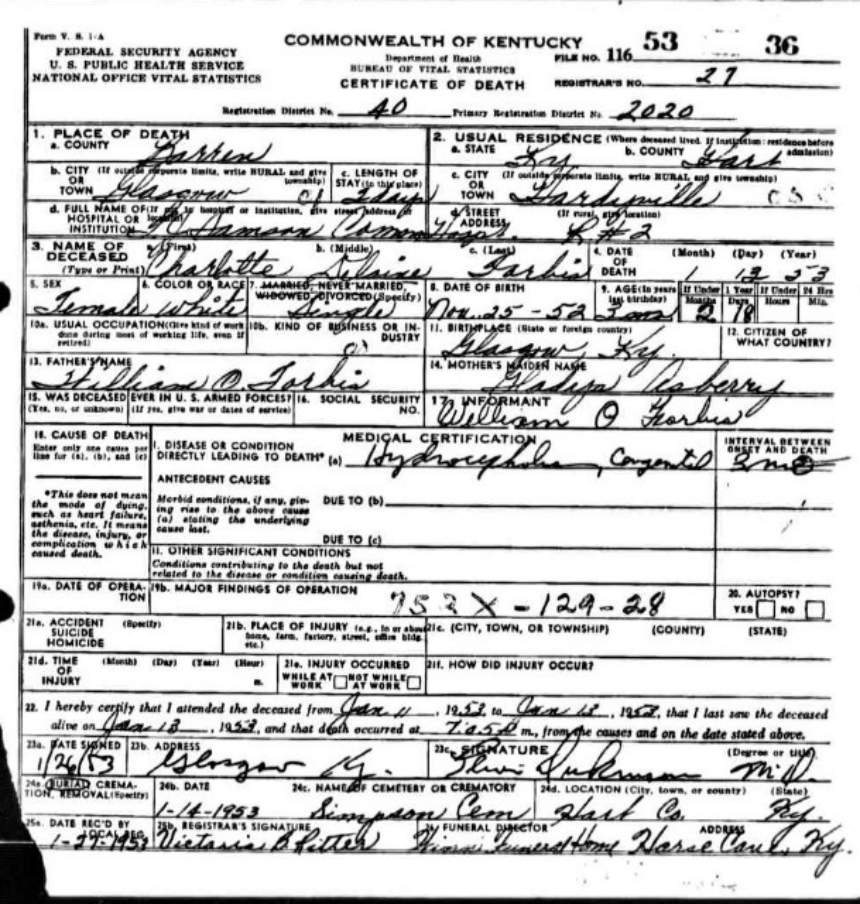 Form V. S. 1-A
FEDERAL SECURITY AGENCY
U. S. PUBLIC HEALTH SERVICE
NATIONAL OFFICE VITAL STATISTICS
COMMONWEALTH OF KENTUCKY
Department of Health
BUREAU OF VITAL STATISTICS
CERTIFICATE OF DEATH
FILE NO. 116 53 36
REGISTRAR'S NO. 27
Registration District No. 40 Primary Registration District No. 2020
1. PLACE OF DEATH
a. COUNTY Barren
2. USUAL RESIDENCE (Where deceased lived. If institution: residence before admission)
a. STATE Ky b. COUNTY Hart
b. CITY (If outside corporate limits, write RURAL and give township)
OR
TOWN Glasgow
c. LENGTH OF
STAY (in this place)
days
c. CITY (If outside corporate limits, write RURAL and give township)
OR
TOWN Hardyville
d. FULL NAME OF (If not in hospital or institution, give street address or location)
HOSPITAL OR
INSTITUTION T J Samson Comm Hosp.
d. STREET (If rural, give location)
ADDRESS R #2
3. NAME OF
DECEASED
(Type or Print)
a. (First) Charlotte
b. (Middle)
c. (Last) Forbis
4. DATE
OF
DEATH
(Month) (Day) (Year)
1 13 53
5. SEX
Female
6. COLOR OR RACE
White
7. MARRIED, NEVER MARRIED,
WIDOWED, DIVORCED (Specify)
Single
8. DATE OF BIRTH
Nov. 25 - 52
9. AGE (In years
last birthday)
If Under 1 Year
Months 2
Days 18
If Under 24 Hrs
Hours Min.
10a. USUAL OCCUPATION (Give kind of work
done during most of working life, even if
retired)
10b. KIND OF BUSINESS OR IN-
DUSTRY
11. BIRTHPLACE (State or foreign country)
Glasgow, Ky.
12. CITIZEN OF
WHAT COUNTRY?
13. FATHER'S NAME
William O. Forbis
14. MOTHER'S MAIDEN NAME
Gladys Asberry
15. WAS DECEASED EVER IN U. S. ARMED FORCES?
(Yes, no, or unknown) (If yes, give war or dates of service)
16. SOCIAL SECURITY
NO.
17. INFORMANT
William O Forbis
18. CAUSE OF DEATH
Enter only one cause per
line for (a), (b), and (c)
MEDICAL CERTIFICATION
I. DISEASE OR CONDITION
DIRECTLY LEADING TO DEATH* (a) Hydrocephalus, Congenital
INTERVAL BETWEEN
ONSET AND DEATH
*This does not mean
the mode of dying,
such as heart failure,
asthenia, etc. It means
the disease, injury, or
complication which
caused death.
ANTECEDENT CAUSES
Morbid conditions, if any, giv-
ing rise to the above cause
(a) stating the underlying
cause last.
DUE TO (b)
DUE TO (c)
II. OTHER SIGNIFICANT CONDITIONS
Conditions contributing to the death but not
related to the disease or condition causing death.
19a. DATE OF OPERA-
TION
19b. MAJOR FINDINGS OF OPERATION
753 X - 129 - 28
20. AUTOPSY?
YES NO
21a. ACCIDENT (Specify)
SUICIDE
HOMICIDE
21b. PLACE OF INJURY (e.g., in or about
home, farm, factory, street, office bldg.,
etc.)
21c. (CITY, TOWN, OR TOWNSHIP) (COUNTY) (STATE)
21d. TIME (Month) (Day) (Year) (Hour)
OF
INJURY m.
21e. INJURY OCCURRED
WHILE AT WORK NOT WHILE AT WORK
21f. HOW DID INJURY OCCUR?
22. I hereby certify that I attended the deceased from Jan 11, 1953, to Jan 13, 1953, that I last saw the deceased
alive on Jan 13, 1953, and that death occurred at m., from the causes and on the date stated above.
23a. DATE SIGNED
1/26/53
23b. ADDRESS
Glasgow Ky.
23c. SIGNATURE (Degree or title)
M.D.
24a. BURIAL, CREMA-
TION, REMOVAL (Specify)
24b. DATE
1-14-1953
24c. NAME OF CEMETERY OR CREMATORY
Simpson Cem
24d. LOCATION (City, town, or county) (State)
Hart Co. Ky.
25a. DATE REC'D BY
LOCAL REG.
1-27-1953
25b. REGISTRAR'S SIGNATURE
Victoria B Ritter
26. FUNERAL DIRECTOR ADDRESS
Funeral Home Horse Cave, Ky.